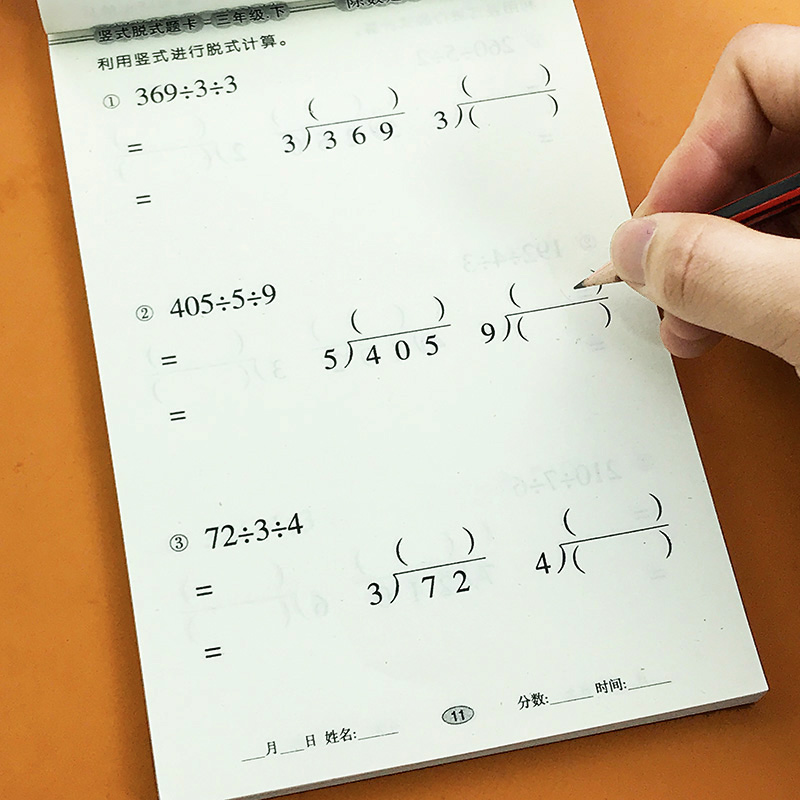 竖式脱式题卡-三年级.下
利用竖式进行脱式计算。
① 369÷3÷3
( ) ( )
= 3)369 3)( )
=
② 405÷5÷9
( ) ( )
= 5)405 9)( )
=
③ 72÷3÷4
( ) ( )
= 3)72 4)( )
=
___月___日 姓名:_____ 11 分数:_____ 时间:_____